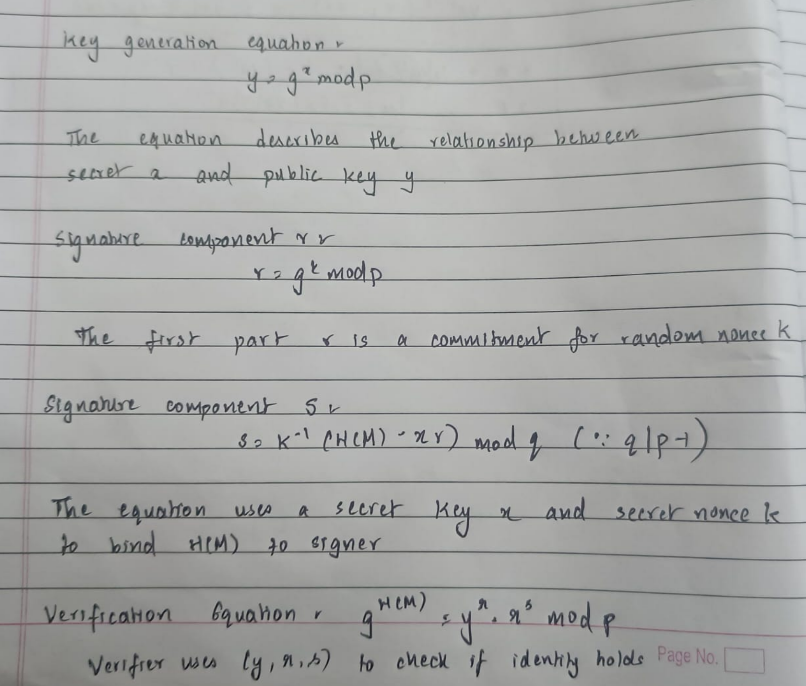 Key generation equation :
y = g^x mod p
The equation describes the relationship between
secret x and public key y
Signature component r :
r = g^k mod p
The first part r is a commitment for random nonce k
Signature component s :
s = k^-1 (H(M) - xr) mod q (∵ q|p-1)
The equation uses a secret key x and secret nonce k
to bind H(M) to signer
Verification Equation : g^H(M) = y^r . r^s mod p
Verifier uses (y, r, s) to check if identity holds
Page No.